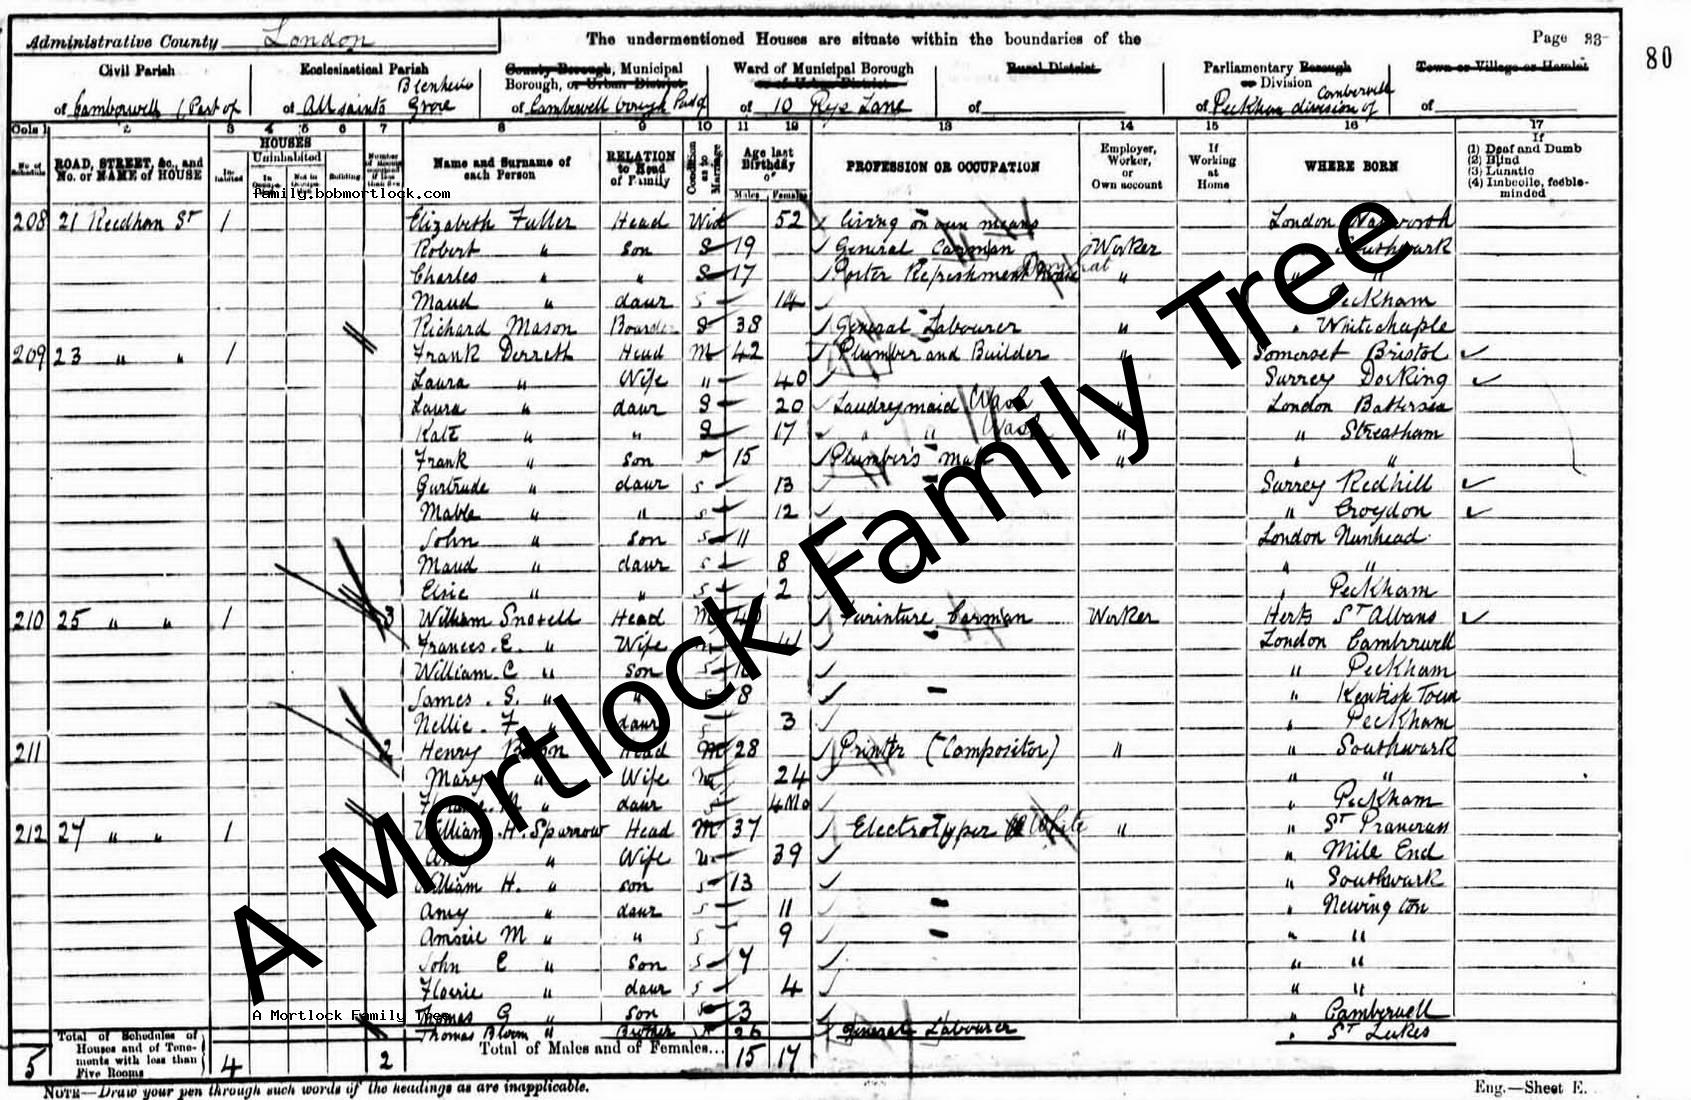 Administrative County London
The undermentioned Houses are situate within the boundaries of the
Page 23
80
Civil Parish
of Camberwell (Part of
Ecclesiastical Parish
of All Saints Blenheim Grove
County Borough, Municipal Borough, or Urban District
of Camberwell borough Part of
Ward of Municipal Borough or of Urban District
of 10 Rye Lane
Rural District
of
Parliamentary Borough or Division
of Peckham division of Camberwell
Town or Village or Hamlet
of
Cols 1 2 3 4 5 6 7 8 9 10 11 12 13 14 15 16 17
No. of Schedule
ROAD, STREET, &c., and No. or NAME of HOUSE
HOUSES
Inhabited
Uninhabited
In Occupation
Not in Occupation
Building
Number of Rooms occupied if less than five
Name and Surname of each Person
RELATION to Head of Family
Condition as to Marriage
Age last Birthday of
Males Females
PROFESSION OR OCCUPATION
Employer, Worker, or Own account
If Working at Home
WHERE BORN
If
(1) Deaf and Dumb
(2) Blind
(3) Lunatic
(4) Imbecile, feeble-minded
Family.bobmortlock.com
208 21 Reedham St 1 Elizabeth Fuller Head Wid 52 living on own means London
Robert " Son S 19 General Carman Worker " Southwark
Charles " " S 17 Porter Refreshment " " "
Maud " daur S 14 Peckham
Richard Mason Boarder S 38 General Labourer " " Whitechaple
209 23 " " 1 Frank Derrett Head M 42 Plumber and Builder " Somerset Bristol
Laura " Wife " 40 Surrey Dorking
Laura " daur S 20 Laudreymaid Wash " London Battersea
Kate " " S 17 " " Wash " " Streatham
Frank " son S 15 Plumber's Mate " " "
Gurtrude " daur S 13 Surrey Redhill
Mable " " S 12 " Croydon
John " son S 11 London Nunhead
Maud " daur S 8 " "
Elsie " " S 2 " Peckham
210 25 " " 1 3 William Snoxell Head M Furinture Carman Worker Herts St Albans
Frances. E. " Wife M London Camberwell
William. C " son S " Peckham
James. S. " " S 8 " Kentish Town
Nellie. F " daur S 3 " Peckham
211 2 Henry Head M 28 Printer (Compositor) " " Southwark
Mary " Wife M 24 " "
M " daur S 4 Mo " Peckham
212 27 " " 1 William. H. Sparrow Head M 37 Electrotyper White " " St Prancras
" Wife M 39 " Mile End
William H. " son S 13 " Southwark
Amy " daur S 11 " Newington
M " " S 9 " "
John E " son S 7 " "
Florrie " daur S 4 " "
Thomas G " son S 3 " Camberwell
Thomas Bloom " Brother 26 General Labourer " St Lukes
A Mortlock Family Tree
A Mortlock Family Tree
5 Total of Schedules of Houses and of Tenements with less than Five Rooms 4 2 Total of Males and of Females... 15 17
NOTE—Draw your pen through such words of the headings as are inapplicable.
Eng.—Sheet E.